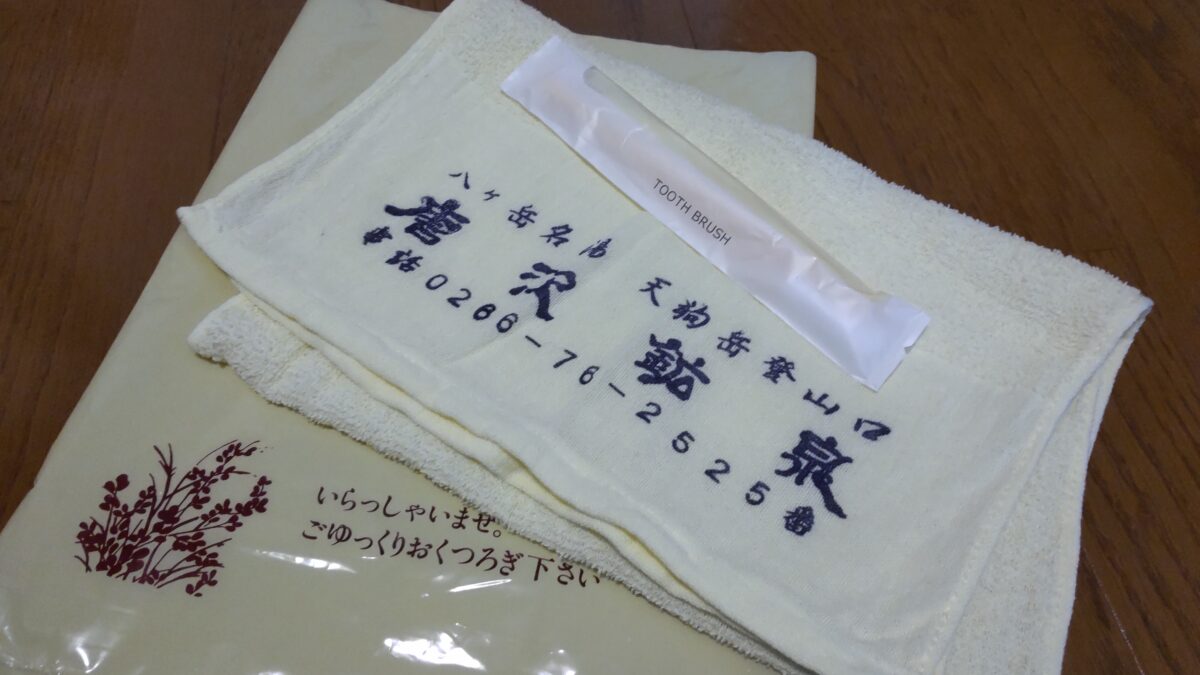 TOOTH BRUSH
八ヶ岳名湯 天狗岳登山口
唐沢鉱泉
電話0266-76-2525番
いらっしゃいませ。
ごゆっくりおくつろぎ下さい